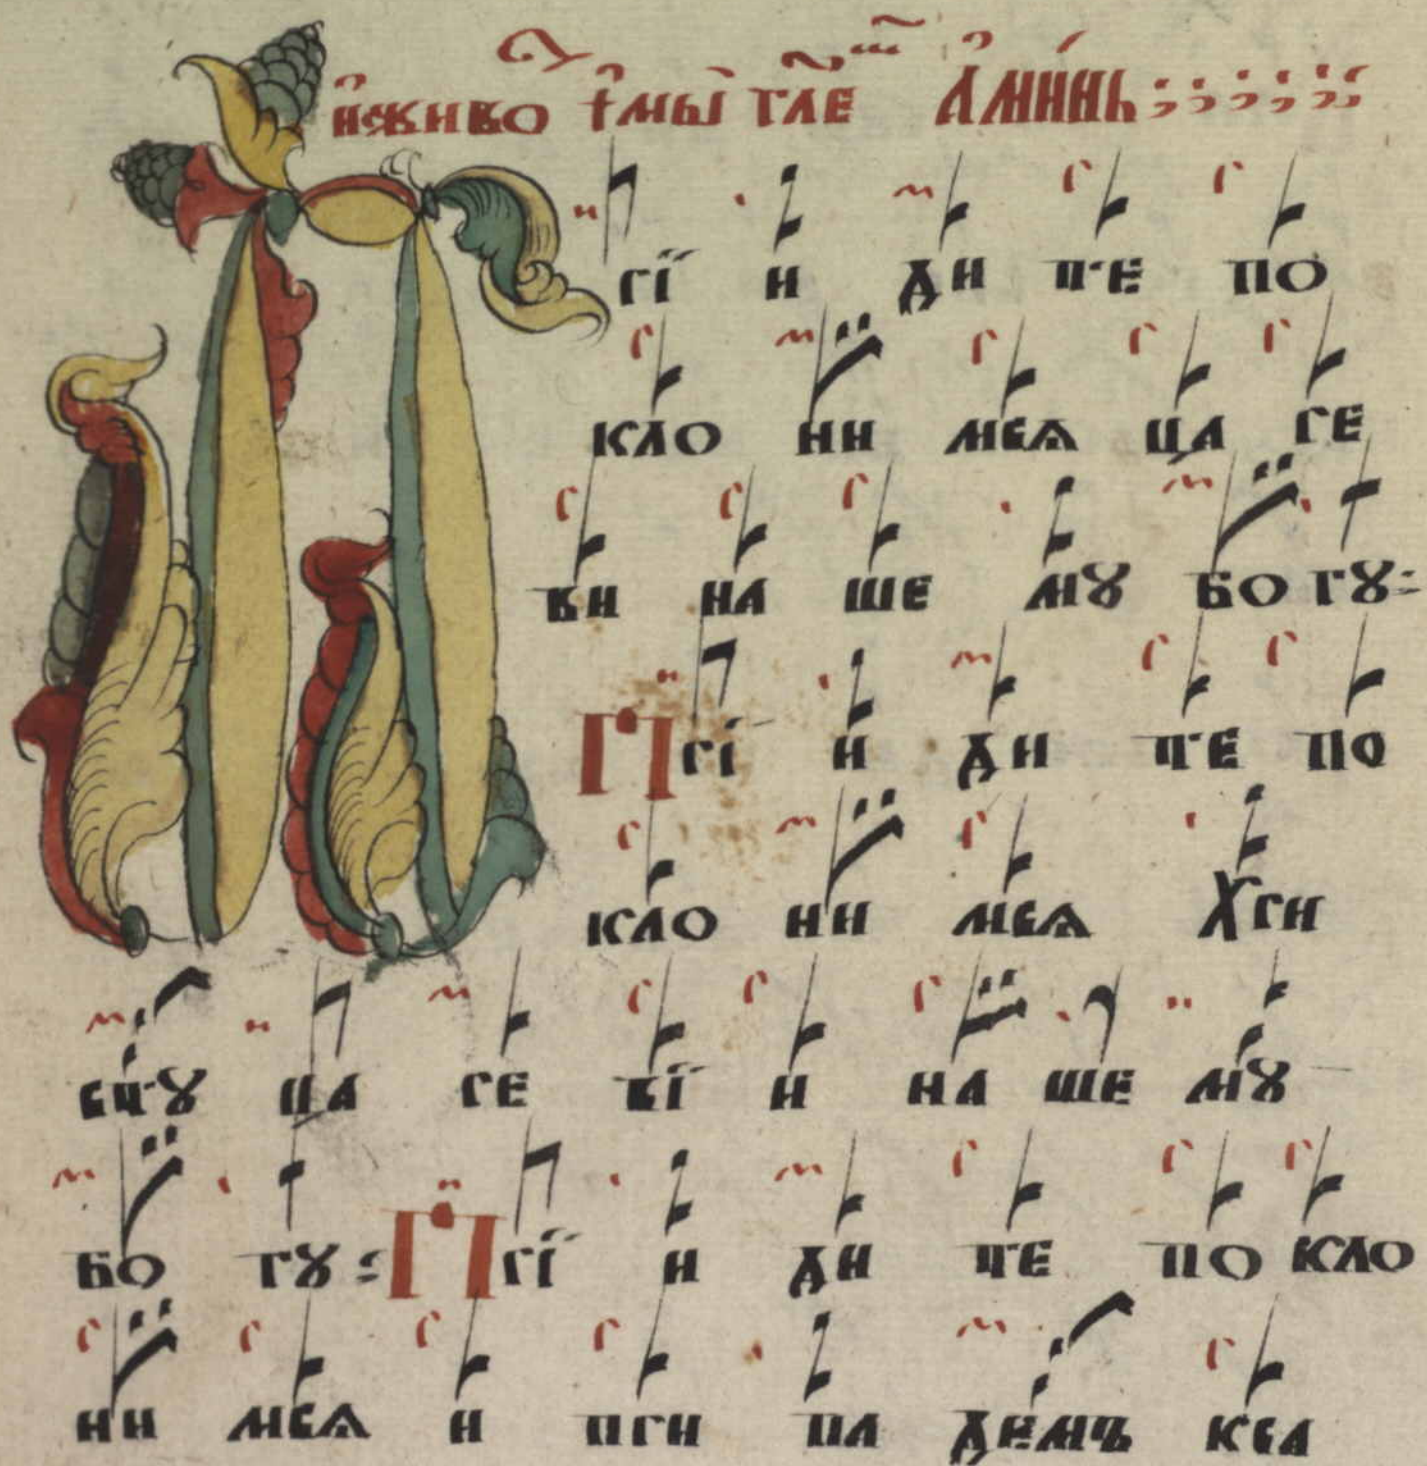 Амі́нь
П рїи ди те по
кло ни мсѧ ца ре
ви на ше мꙋ бо гꙋ:
Прїи ди те по
кло ни мсѧ Хри
стꙋ ца ре вї и на ше мꙋ
бо гꙋ: Прї и ди те по кло
ни мсѧ и при па демъ ксa